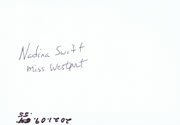 Nadina Swift
Miss Westport
2021.09.
55